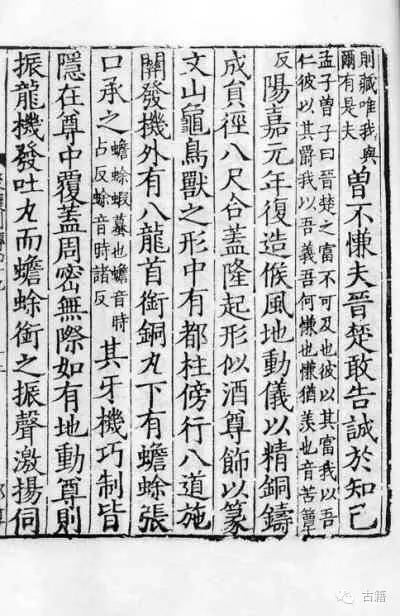 則藏唯我與
爾有是夫
曾不慊夫晉楚敢告誠於知己
孟子曽子曰晉楚之富不可及也彼以其富我以吾
仁彼以其爵我以吾義吾何慊也慊猶羨也音苦簟
反
陽嘉元年復造候風地動儀以精銅鑄
成貟徑八尺合蓋隆起形似酒尊飾以篆
文山龜鳥獸之形中有都柱傍行八道施
關發機外有八龍首銜銅丸下有蟾蜍張
口承之
蟾蜍蝦蟇也蟾音時
占反蜍音時諸反
其牙機巧制皆
隱在尊中覆蓋周密無際如有地動尊則
振龍機發吐丸而蟾蜍銜之振聲激揚伺
古籍